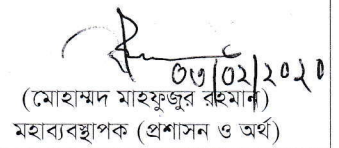 ০৩/০২/২০২০
(মোহাম্মদ মাহফুজুর রহমান)
মহাব্যবস্থাপক (প্রশাসন ও অর্থ)